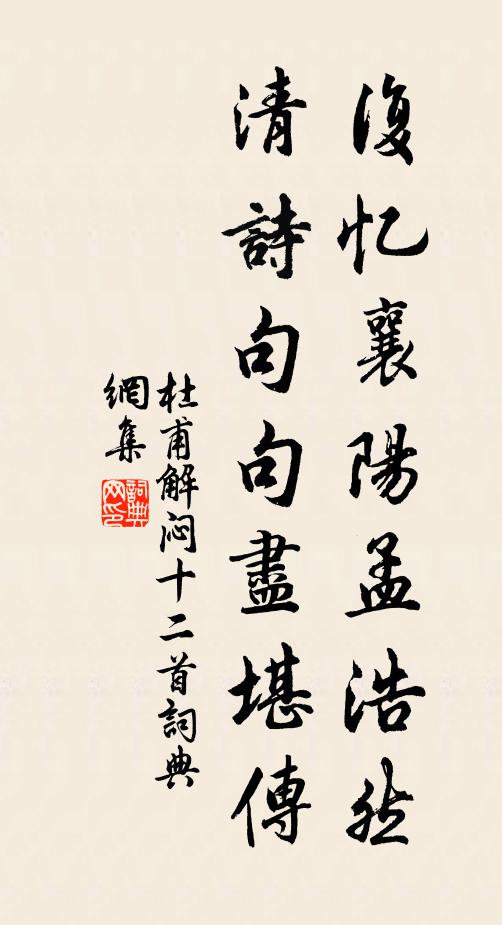 復忆襄陽孟浩然
清詩句句盡堪傳
杜甫解闷十二首詞典
網集
詞典網印